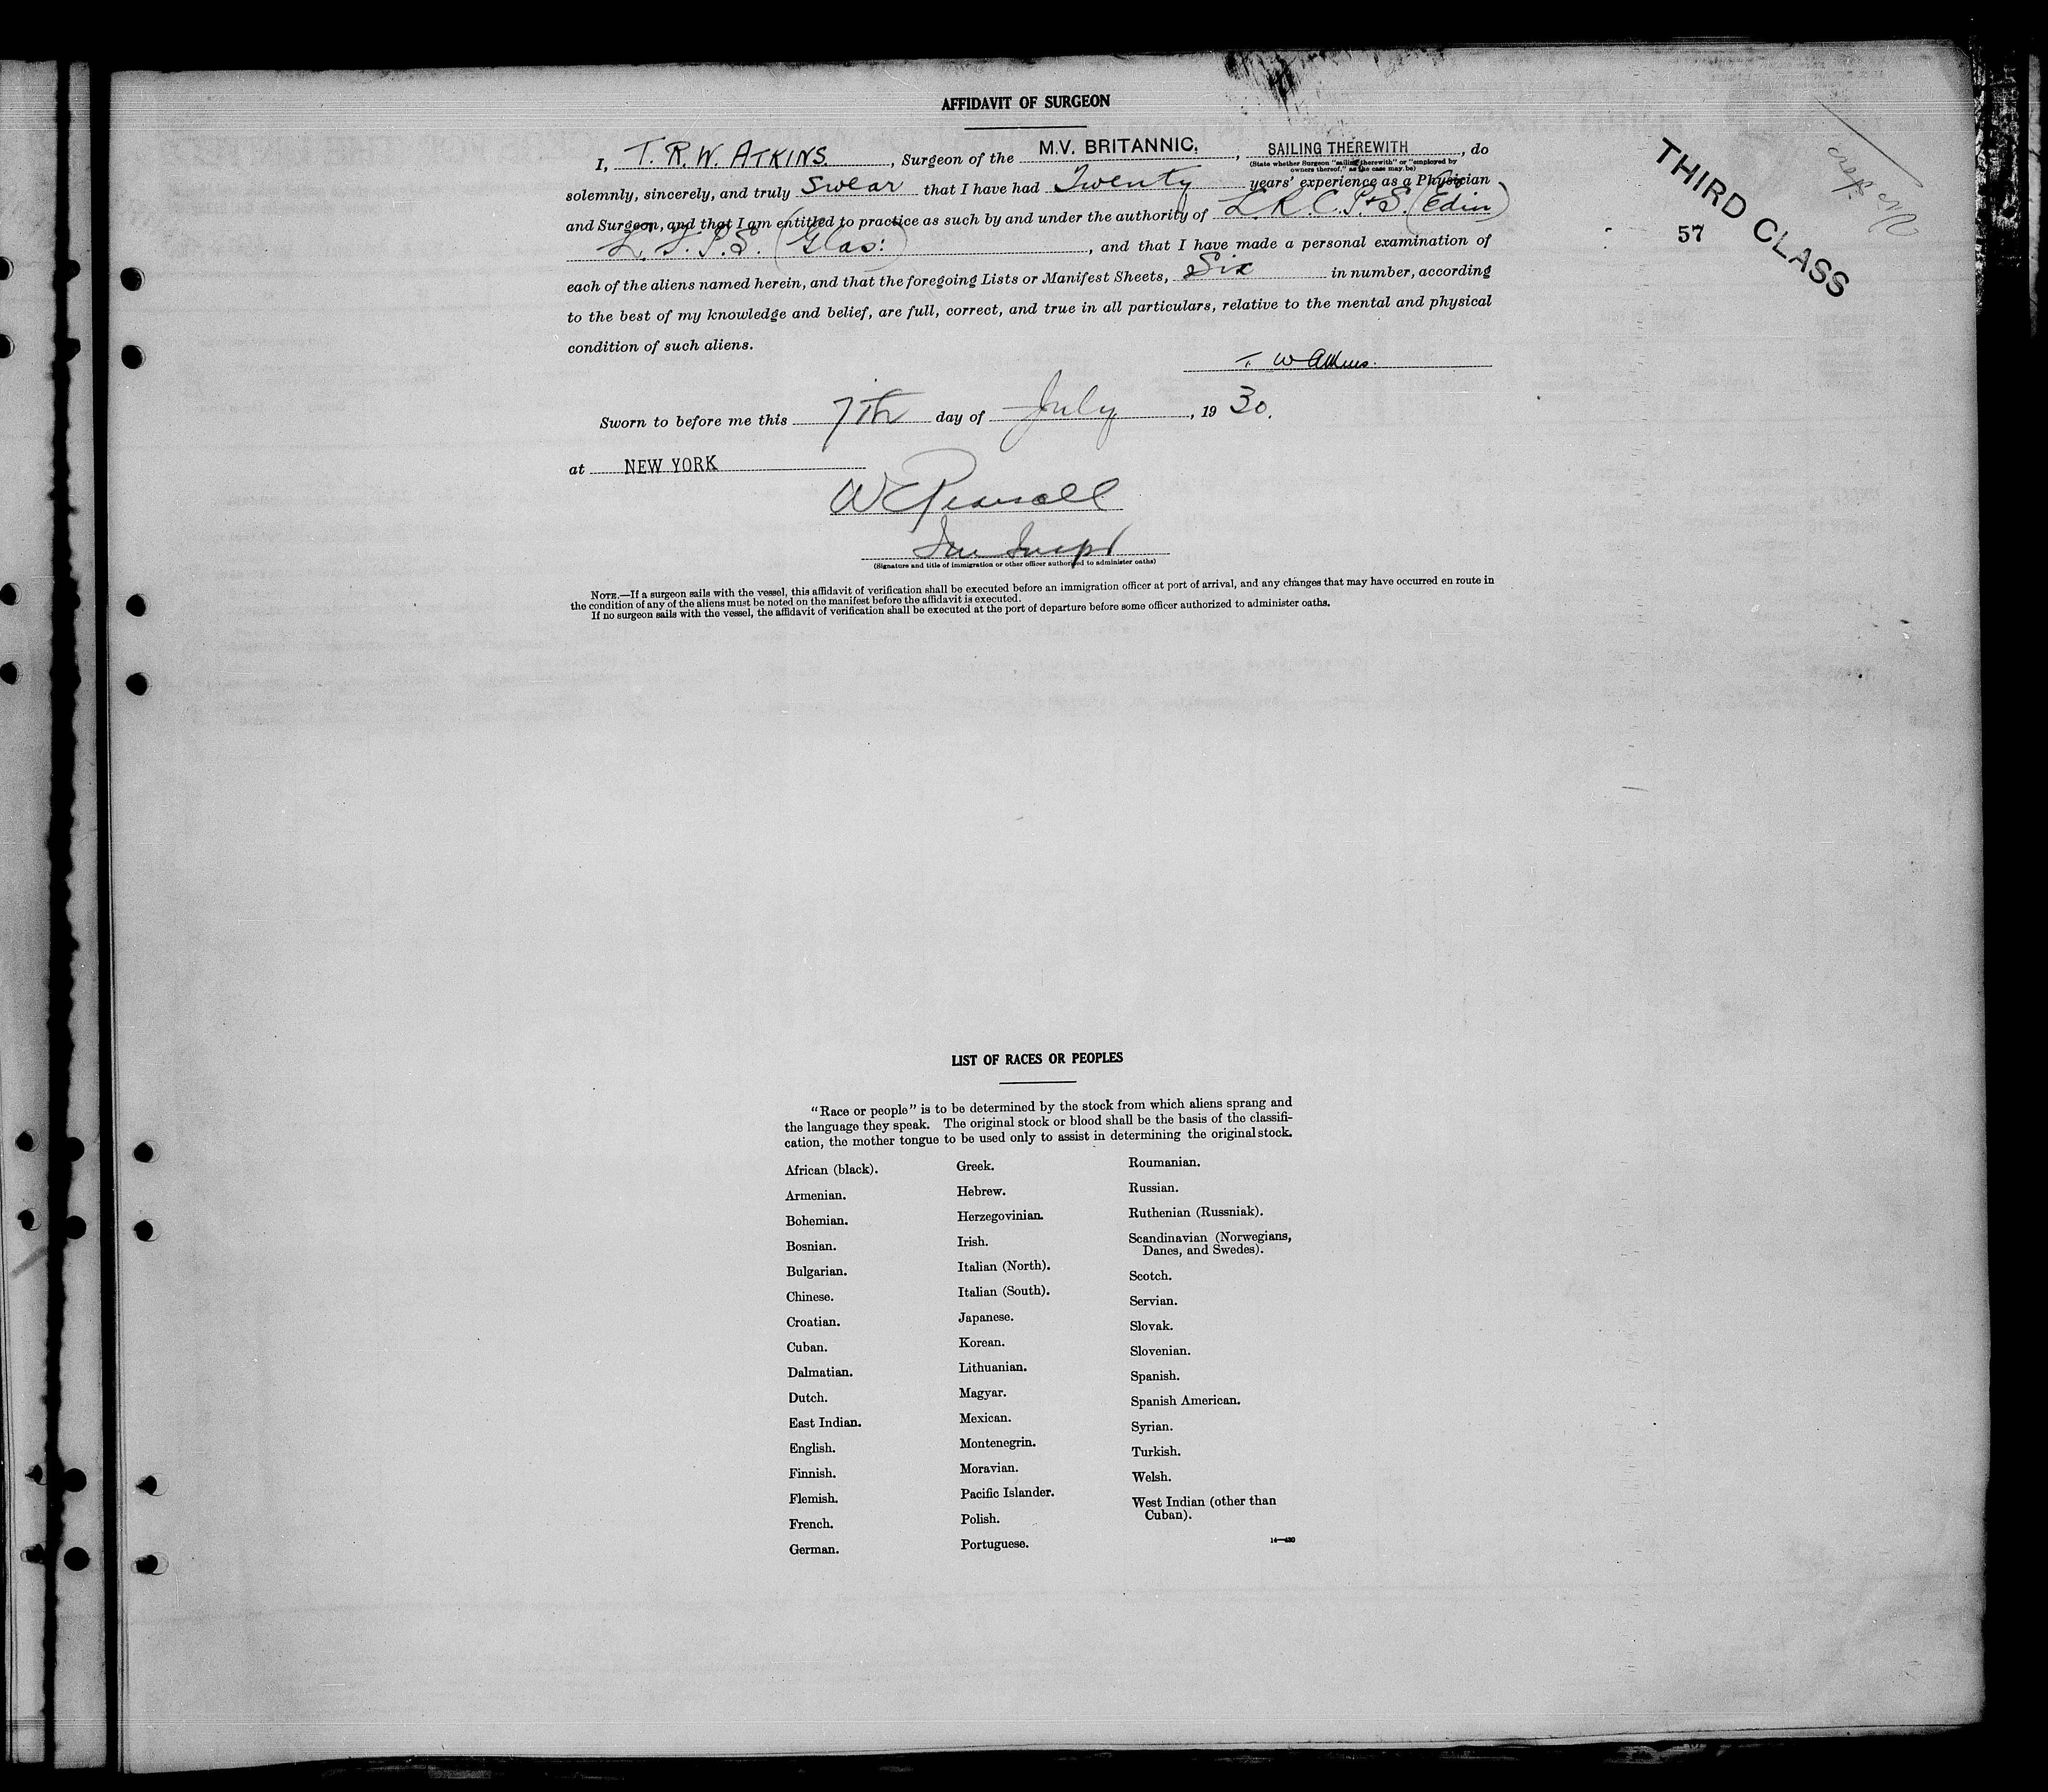 AFFIDAVIT OF SURGEON
I, T. R. W. ATKINS. , Surgeon of the M.V. BRITANNIC. , SAILING THEREWITH , do
(State whether Surgeon "sailing therewith" or "employed by
owners thereof," as the case may be)
solemnly, sincerely, and truly swear that I have had Twenty years' experience as a Physician
and Surgeon, and that I am entitled to practice as such by and under the authority of L.R.C.P.&S. (Edin)
L.F.P.S. (Glas: ) , and that I have made a personal examination of
each of the aliens named herein, and that the foregoing Lists or Manifest Sheets, Six in number, according
to the best of my knowledge and belief, are full, correct, and true in all particulars, relative to the mental and physical
condition of such aliens.
T W Atkins.
Sworn to before me this 7th day of July , 19 30.
at NEW YORK
W E Pearsall
Imm Inspr
(Signature and title of immigration or other officer authorized to administer oaths)
NOTE.—If a surgeon sails with the vessel, this affidavit of verification shall be executed before an immigration officer at port of arrival, and any changes that may have occurred en route in
the condition of any of the aliens must be noted on the manifest before the affidavit is executed.
If no surgeon sails with the vessel, the affidavit of verification shall be executed at the port of departure before some officer authorized to administer oaths.
THIRD CLASS
57
LIST OF RACES OR PEOPLES
"Race or people" is to be determined by the stock from which aliens sprang and
the language they speak. The original stock or blood shall be the basis of the classifi-
cation, the mother tongue to be used only to assist in determining the original stock.
African (black).
Armenian.
Bohemian.
Bosnian.
Bulgarian.
Chinese.
Croatian.
Cuban.
Dalmatian.
Dutch.
East Indian.
English.
Finnish.
Flemish.
French.
German.
Greek.
Hebrew.
Herzegovinian.
Irish.
Italian (North).
Italian (South).
Japanese.
Korean.
Lithuanian.
Magyar.
Mexican.
Montenegrin.
Moravian.
Pacific Islander.
Polish.
Portuguese.
Roumanian.
Russian.
Ruthenian (Russniak).
Scandinavian (Norwegians,
Danes, and Swedes).
Scotch.
Servian.
Slovak.
Slovenian.
Spanish.
Spanish American.
Syrian.
Turkish.
Welsh.
West Indian (other than
Cuban).
14—430